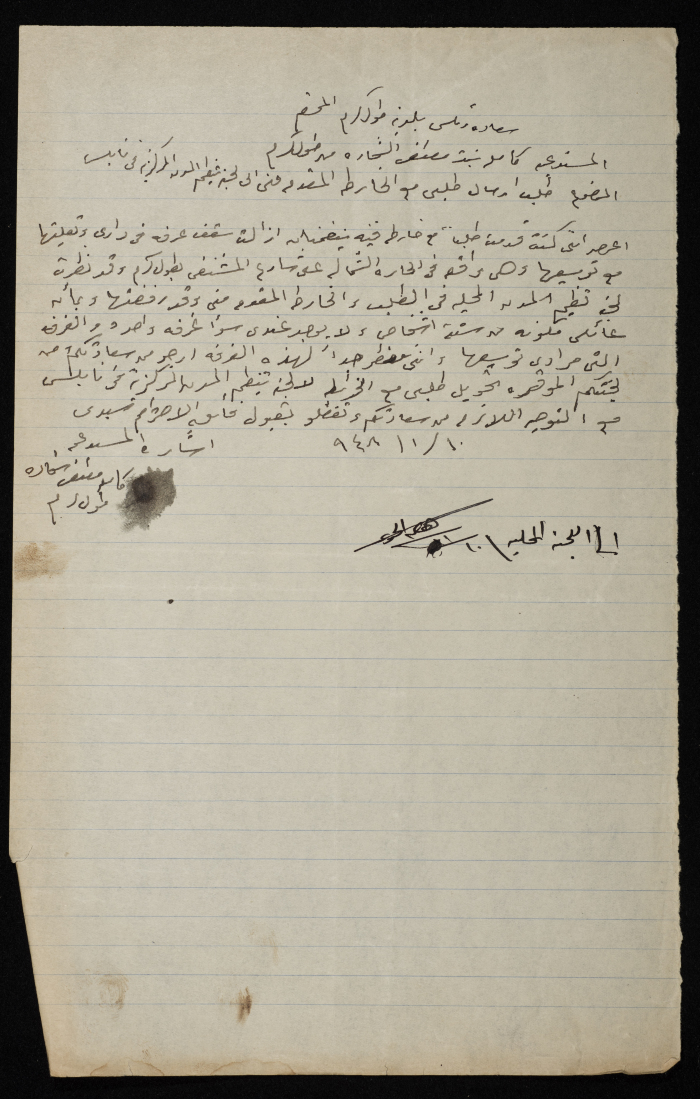 سعادة رئيس بلدية طولكرم المحترم
المستدعيه كامله بنت مصطفى الشحاده من طولكرم
الموضوع طلب ارسال طلبي مع الخارطه المقدمه مني الى لجنة تنظيم المدن المركزية في نابلس
اعرض انني كنت قدمت طلبا مع خارطه فنيه يتضمنان ازالت سقف غرفه في داري وتعليتها
مع توسيعها وهي واقعه في الحاره الشماليه على شارع المستشفى بطولكرم وقد نظرت
لجنة تنظيم المدن المحليه في الطلب والخارطه المقدمه مني وقد رفضتها وبما انه
عائلتي مكونه من ستة اشخاص ولا يوجد عندي سوا غرفه واحده والغرفه
التي مرادي توسيعها وانني مضطر جداً لهذه الغرفه ارجو من سعادتكم من
لجنتكم الموقره تحويل طلبي مع الخرائط للجنة تنظيم المدن المركزية في نابلس
مع التوجيه اللازم من سعادتكم وتفضلو بقبول فائق الاحترام سيدي
١٠ / ١١ ٩٤٨ اشارة المستدعيه
كامله مصطفى شحاده
طولكرم
الى اللجنة المحليه ١٠ / ١١